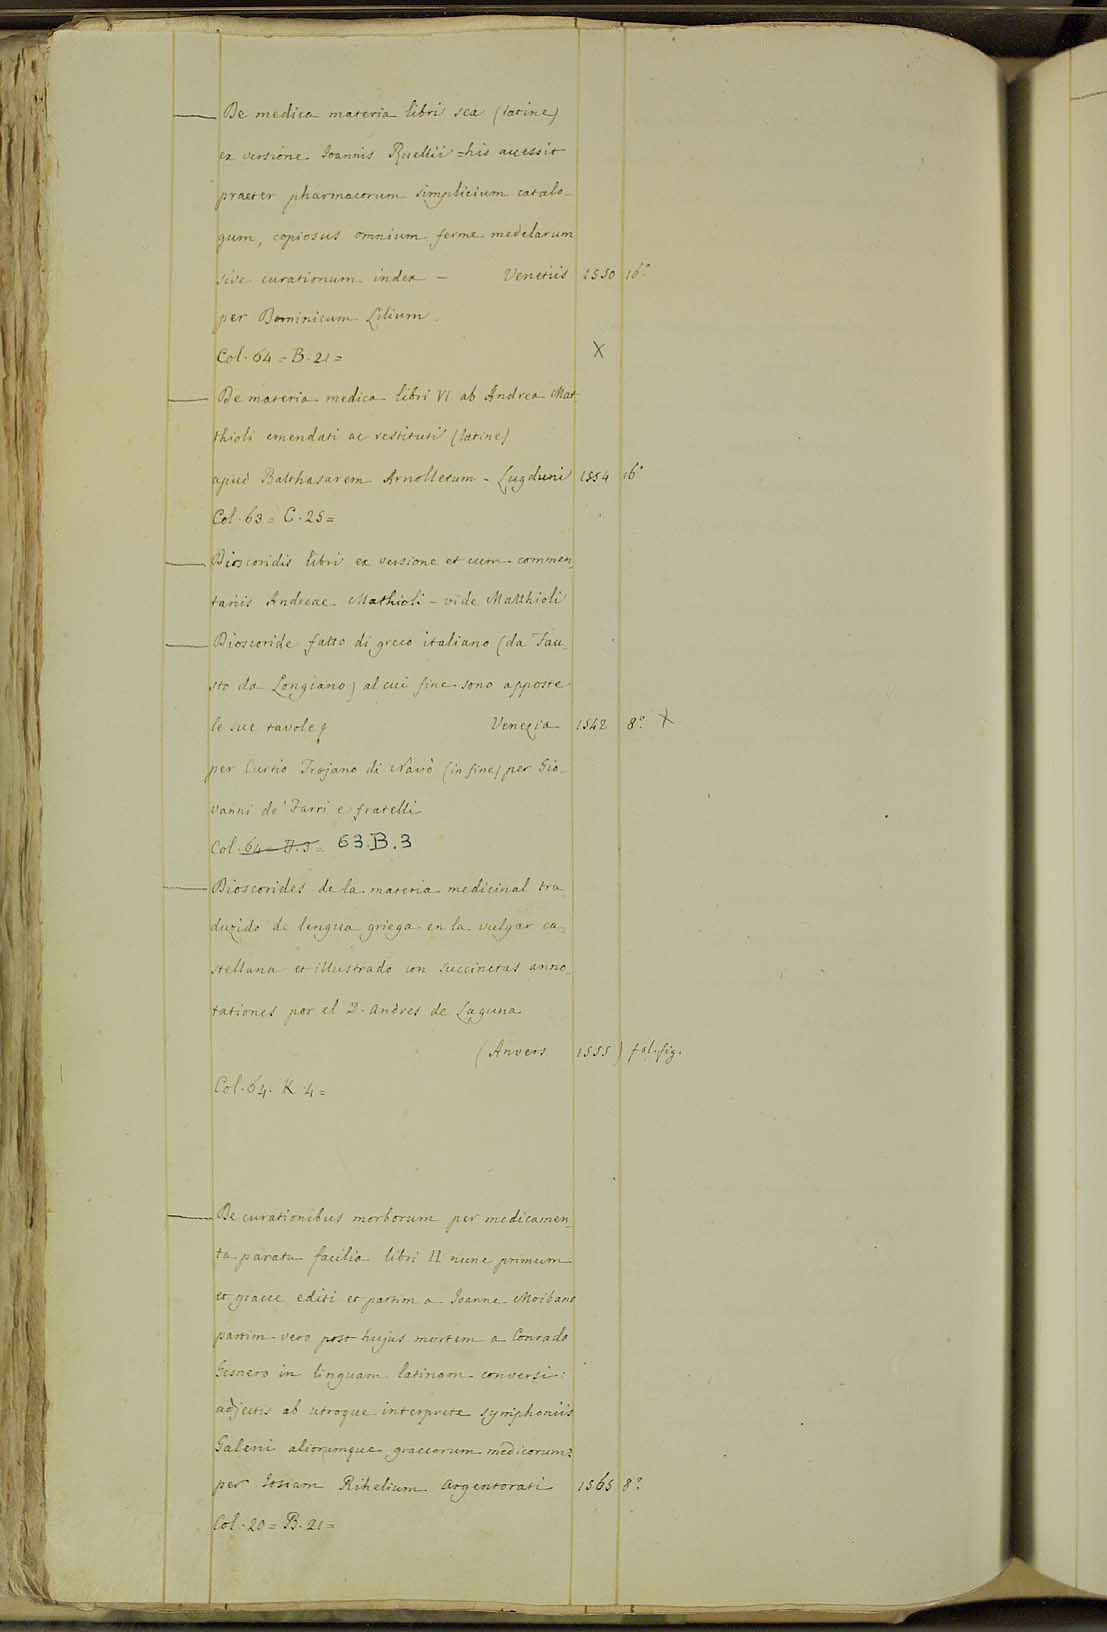 — De medica materia libri sex (latine)
ex versione Joannis Ruellii = his accessit
praeter pharmacorum simplicium catalo-
gum, copiosus omnium ferme medelarum
sive curationum index — Venetiis 1550 16°
per Dominicum Lilium.
Col. 64 = B. 21 = X
— De materia medica libri VI ab Andrea Mat-
thioli emendati ac restituti (latine)
apud Balthasarem Arnolletum - Lugduni 1554 16°
Col. 63 = C. 25 =
— Dioscoridis libri ex versione et cum commen-
tariis Andreae Mathioli - vide Matthioli
— Dioscoride fatto di greco italiano (da Fau-
sto da Longiano) al cui fine sono apposte
le sue tavole Venezia 1542 8° X
per Curtio Trojano di Navò (in fine) per Gio-
vanni de' Farri e fratelli
Col. 64 = 63.B.3
— Dioscorides de la materia medicinal tra
duzido de lengua griega en la vulgar ca-
stellana et illustrado con succinctas anno-
tationes por el D. Andres de Laguna
(Anvers 1555) fol. fig.
Col. 64. K. 4 =
— De curationibus morborum per medicamen-
ta paratu facilia libri II nunc primum
et graece editi et partim a Joanne Moibano
partim vero post hujus mortem a Conrado
Gesnero in linguam latinam conversi:
adjectis ab utroque interprete symphoniis
Galeni aliorumque graecorum medicorum:
per Josiam Rihelium Argentorati 1565 8°
Col. 20 = B. 21 =